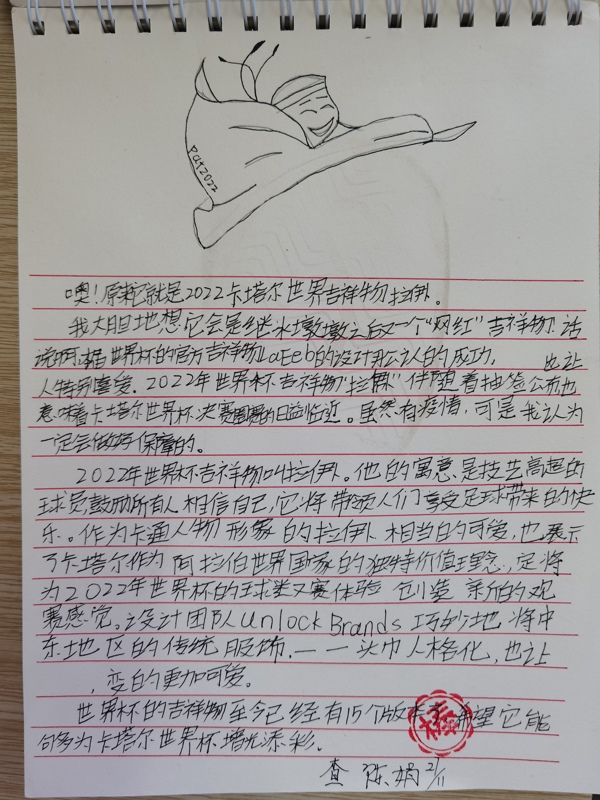 Qat2022
噢!原来它就是2022卡塔尔世界吉祥物拉伊卜。
我大胆地想它会是继冰墩墩之后又一个“网红”吉祥物。话
说啊,据世界杯的官方吉祥物LaEeb的设计 公认的成功, 也让
人特别喜爱。2022年世界杯吉祥物“拉 ”伴随着抽签公布也
意味着卡塔尔世界杯决赛圈赛的日益临近。虽然有疫情,可是我认为
一定会做好保障的。
2022年世界杯吉祥物叫拉伊卜。他的寓意是技艺高超的
球员鼓励所有人相信自己,它将带领人们享受足球带来的快
乐。作为卡通人物形象的拉伊卜相当的可爱,也展示
了卡塔尔作为阿拉伯世界国家的独特价值理念,定将
为2022年世界杯的球类 赛体验创造新的观
赛感觉。设计团队Unlock Brands巧妙地将中
东地区的传统服饰.——头巾人格化,也让
,变的更加可爱。
世界杯的吉祥物至今已经有15个版本 希望它能
够多为卡塔尔世界杯增光添彩.
查 陈娟 2/11